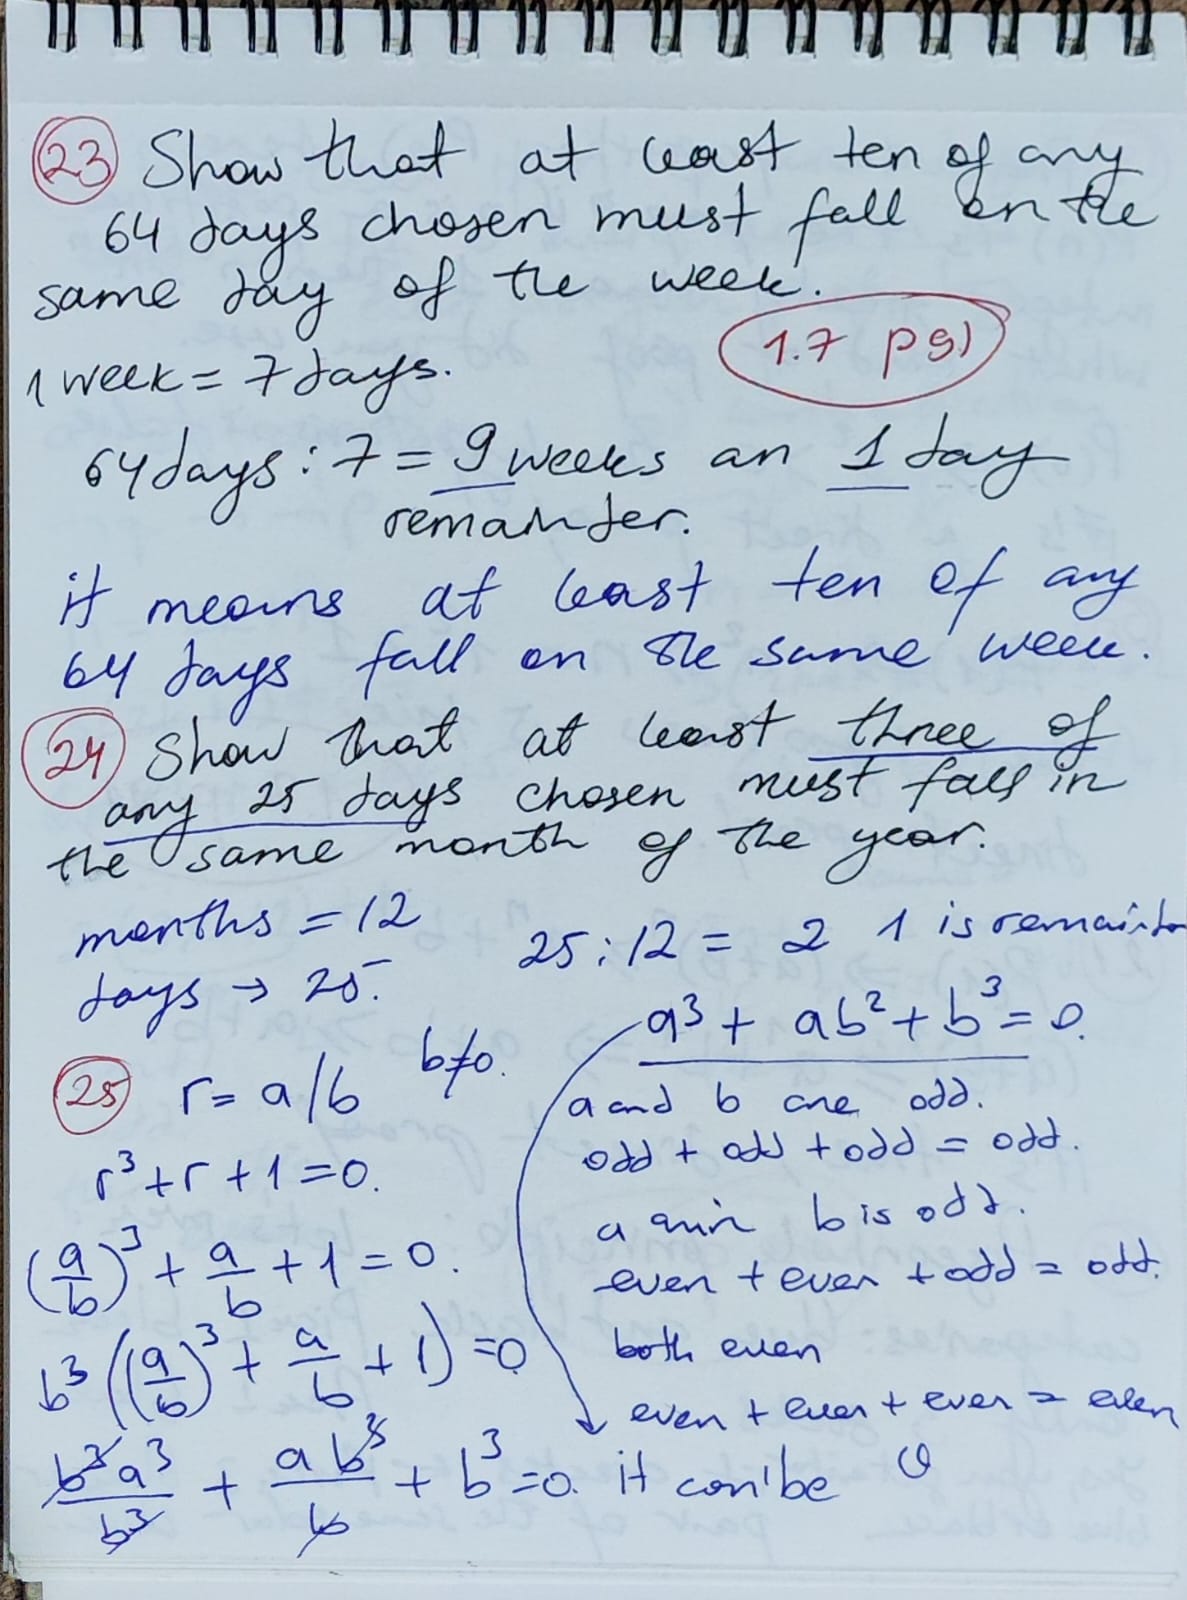 23 Show that at least ten of any
64 days chosen must fall on the
same day of the week.
1.7 pg1
1 week = 7 days.
64 days : 7 = 9 weeks an 1 day
remainder.
it means at least ten of any
64 days fall on the same week.
24 Show that at least three of
any 25 days chosen must fall in
the same month of the year.
months = 12
days → 25.
25 : 12 = 2 1 is remainder
25 r = a/b b≠0.
r³ + r + 1 = 0.
(a/b)³ + a/b + 1 = 0.
b³((a/b)³ + a/b + 1) = 0
b³a³/b³ + ab³/b + b³ = 0.
a³ + ab² + b³ = 0.
a and b are odd.
odd + odd + odd = odd.
a b is odd.
even + even + odd = odd.
both even
even + even + even = even
it can'be 0